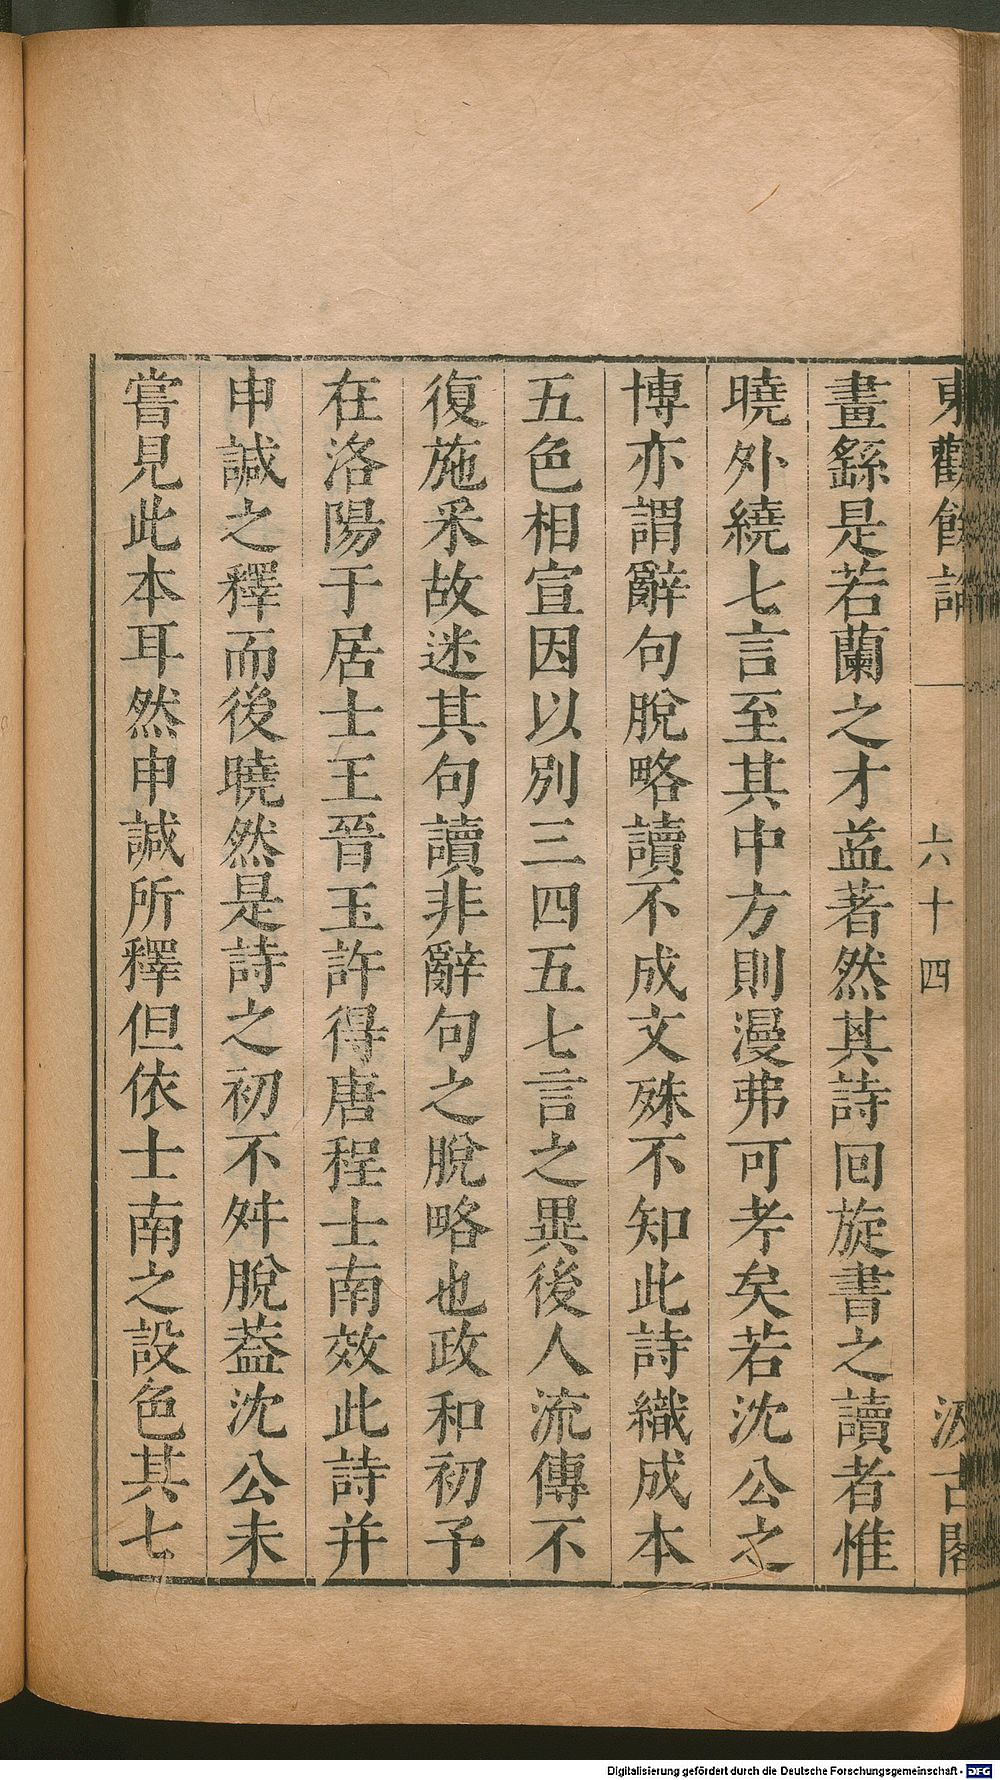 東觀餘論 一 六十四 汲古閣
畫繇是若蘭之才益著然其詩回旋書之讀者惟
曉外繞七言至其中方則漫弗可考矣若沈公之
博亦謂辭句脫略讀不成文殊不知此詩織成本
五色相宣因以別三四五七言之異後人流傳不
復施釆故迷其句讀非辭句之脫略也政和初予
在洛陽于居士王晉玉許得唐程士南效此詩并
申諴之釋而後曉然是詩之初不舛脫葢沈公未
嘗見此本耳然申諴所釋但依士南之設色其七
Digitalisierung gefördert durch die Deutsche Forschungsgemeinschaft - DFG